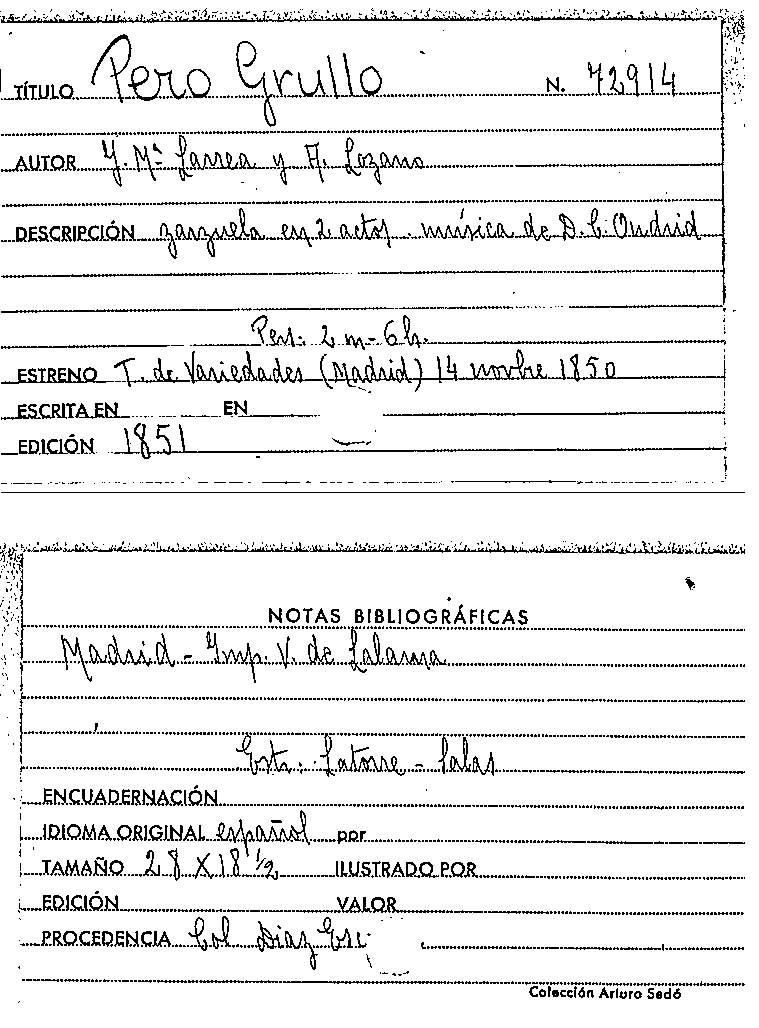 TÍTULO Pero Grullo N. 72914
AUTOR J. Mª Larrea y A. Lozano
DESCRIPCIÓN zarzuela en 2 actos. música de D. C. Oudrid
Pers: 2 m-6h.
ESTRENO T. de Variedades (Madrid) 14 novbre 1850
ESCRITA EN EN
EDICIÓN 1851
NOTAS BIBLIOGRÁFICAS
Madrid - Imp. V. de Lalama
Estr: Latorre - Salas
ENCUADERNACIÓN
IDIOMA ORIGINAL español por
TAMAÑO 28 X 18 1/2 ILUSTRADO POR
EDICIÓN VALOR
PROCEDENCIA Col Diaz Esc
Colección Arturo Sedó